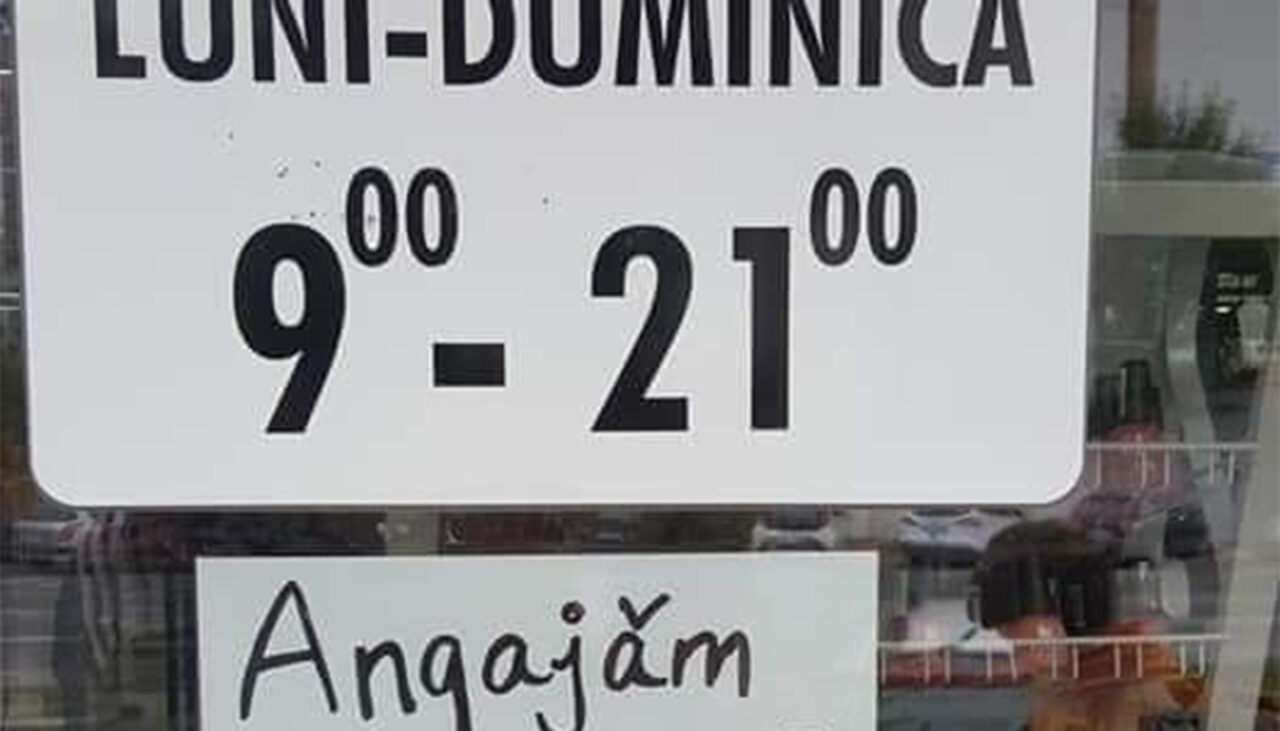 LUNI-DUMINICA
9⁰⁰ - 21⁰⁰
Angajăm